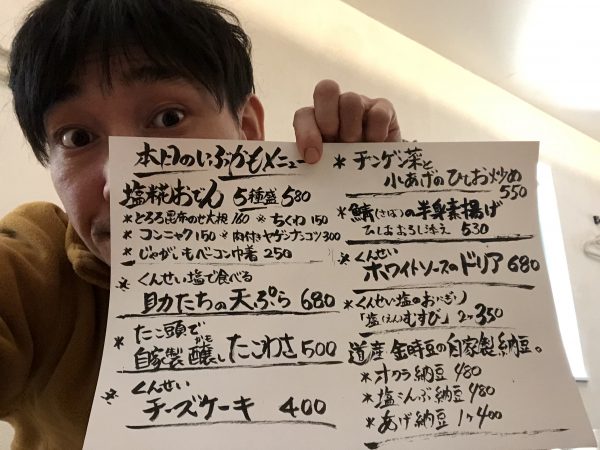 本日のいぶかもメニュー
塩糀おでん 5種盛 580
*とろろ昆布のせ大根 160 *ちくわ 150
*コンニャク 150 *肉付きヤゲンナンコツ 300
*じゃがいもベーコン巾着 250
*くんせい塩で食べる
助たちの天ぷら 680
*たこ頭で
自家製醸したこわさ 500
*くんせい
チーズケーキ 400
*チンゲン菜と
小あげのひしお炒め
550
*鯖(さば)の半身素揚げ
ひしおおろし添え 530
*くんせい
ホワイトソースのドリア 680
*くんせい塩のおにぎり
「塩(えん)むすび」2ケ 350
道産 金時豆の自家製納豆。
*オクラ納豆 480
*塩こんぶ納豆 480
*あげ納豆 1ケ 400